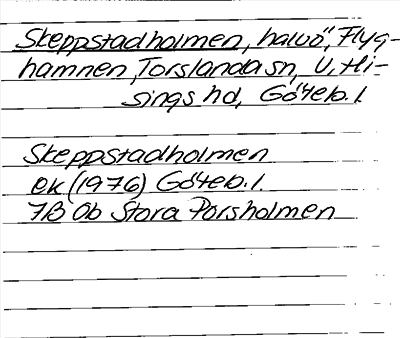 Skeppstadholmen, halvö, Flyg-
hamnen, Torslanda sn, V. Hi-
sings hd, Göteb. l.
Skeppstadholmen
ek (1976) Göteb. l.
7B 0b Stora Porsholmen